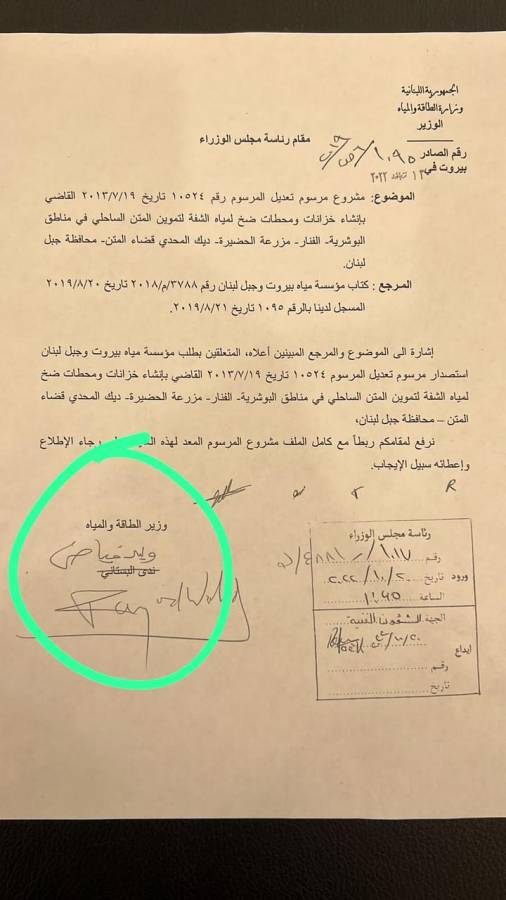 الجمهورية اللبنانية
وزارة الطاقة والمياه
الوزير
مقام رئاسة مجلس الوزراء
رقم الصادر ١٠٩٥/
بيروت في ٢٠٢٢
الموضوع: مشروع مرسوم تعديل المرسوم رقم ١٠٥٢٤ تاريخ ٢٠١٣/٧/١٩ القاضي
بإنشاء خزانات ومحطات ضخ لمياه الشفة لتموين المتن الساحلي في مناطق
البوشرية- الفنار- مزرعة الحضيرة- ديك المحدي قضاء المتن- محافظة جبل
لبنان.
المرجع : كتاب مؤسسة مياه بيروت وجبل لبنان رقم ٣٧٨٨/م/٢٠١٨ تاريخ ٢٠١٩/٨/٢٠
المسجل لدينا بالرقم ١٠٩٥ تاريخ ٢٠١٩/٨/٢١.
إشارة الى الموضوع والمرجع المبينين أعلاه، المتعلقين بطلب مؤسسة مياه بيروت وجبل لبنان
استصدار مرسوم تعديل المرسوم ١٠٥٢٤ تاريخ ٢٠١٣/٧/١٩ القاضي بإنشاء خزانات ومحطات ضخ
لمياه الشفة لتموين المتن الساحلي في مناطق البوشرية- الفنار- مزرعة الحضيرة- ديك المحدي قضاء
المتن – محافظة جبل لبنان،
نرفع لمقامكم ربطاً مع كامل الملف مشروع المرسوم المعد لهذه رجاء الإطلاع
وإعطائه سبيل الإيجاب.
R
وزير الطاقة والمياه
وليد فياض
ندى البستاني
Fayad Walid
رئاسة مجلس الوزراء
رقم ١٠١٧
ورود تاريخ ٢٠٢٢/١٠/٢٠
الساعة
الجهة الشؤون الفنية
ايداع
رقم
تاريخ